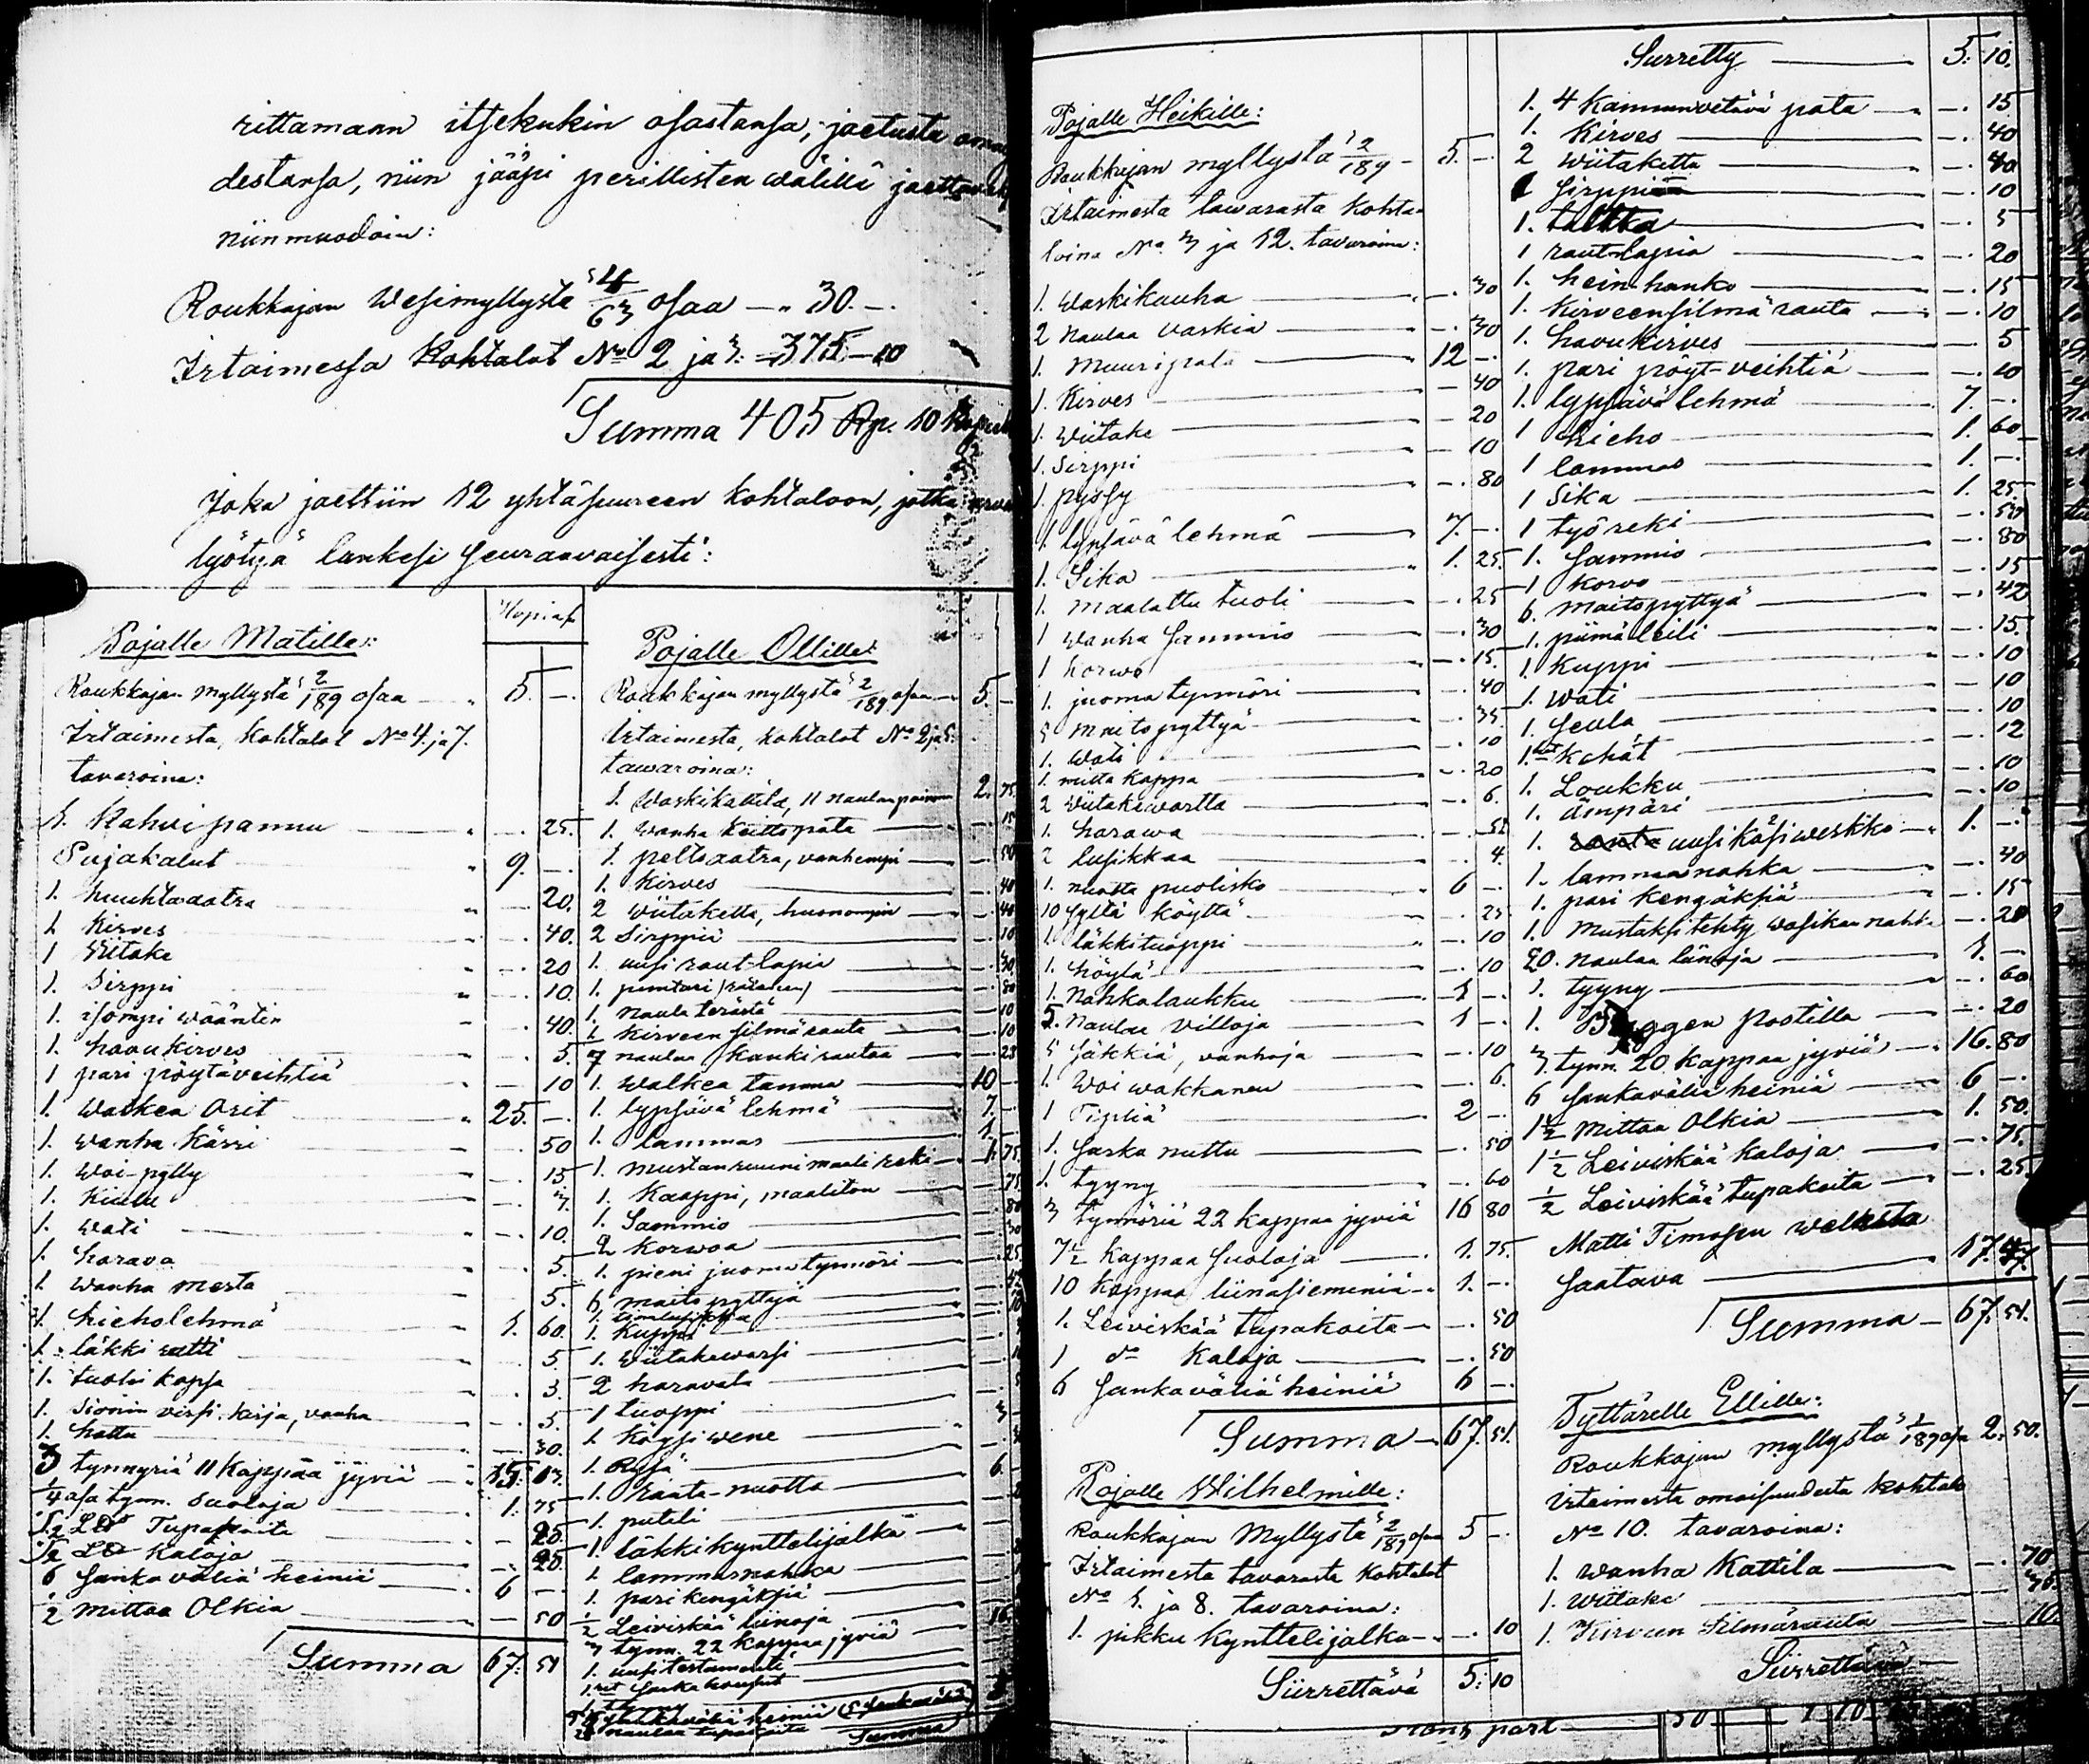 rittamaan itsekukin osastansa, jaetusta
destansa, niin jääpi perillisten wälillä
niinmuodoin:
Roukkajan Wesimyllystä 4/63 osaa — " 30. —.
Irtaimessa Kohtalot No 2 ja 3: = 375 — 10
Summa 405 Rp. 10
Joka jaettiin 12 yhtäsuureen kohtaloon, jotka
lyötyä lankesi seuraavaisesti:
Pojalle Matille:
Roukkajan myllystä 2/189 osaa — 5. —.
Irtaimesta, Kohtalot No 4. ja 7.
tavaroina:
1. Kahvipannu — 25.
Pajakalut 9. —.
1. huuhtaaatra — 20.
1 Kirves — 40.
1 Wiitake — 20
1. Sirppi — 10.
1. isompi wääntin — 40.
1. havukirves — 5.
1 pari pöytäveihtiä — 10
1. Walkea Orit 25. —.
1. wanha kärri — 50
1. Woi-pytty — 15
1. — 7.
1. Wati — 10.
1. harava — 5.
1 wanha mesta — 5.
1. hieholehmä 1. 60.
1. läkki — 5.
1. tuoli — 3.
1. Sionin virsi-kirja, vanha — 5.
1. hattu — 30.
3 tynnyriä 11 Kappaa jyviä — 15.
1/4 osa tynn. suoloja 1. 75
1/2 L℔ Tupakoita — 25.
1/2 L℔ Kaloja — 25.
6 sankoväliä heiniä 6 —
1/2 mittaa Olkia — 50
Summa 67. 51
Pojalle Ollille:
Roukkajan myllystä 2/189 osaa — 5. —
Irtaimesta, kohtalot No 2 ja 5:
tawaroina:
1. Waskikattila, 11 naulaa 2. 75
1. wanha keittopata — 15
1. peltoaatra, vanhempi — 50
1. Kirves — 40
2 Wiitaketta, huonompia — 40
2 Sirppiä — 10
1. uusi raut-lapia — 30
1. puntari
1. naula terästä — 10
1. Kirveen silmärauta — 10
7 naulaa Kankirautaa — 28
1. Walkea tamma — 10
1. lypsävä lehmä — 7. —
1. lammas — 1. —
1. mustanruunimaali reki — 1. 75
1. Kaappi, maaliton — 75
1. Sammio — 80
2 Korwoa — 30
1. pieni juomatynnöri — 25
6 maitopyttyjä
1. Kuppi
1. Wiitakewarsi
2 haravata
1 tuoppi
1. Köysi wene
1. Rysä
1. Raata-nuotta 6. —
1. puteli
1. läkkikynttelijalka
1. lammasnahka
1. pari kengäksiä
1/2 Leiviskää liinoja
3 tynn. 22 kappaa jyviä 16.
1. uusi testamentti
sankoväliä heiniä
naulaa tupakoita
Summa
Pojalle Heikille:
Roukkajan myllystä 2/189 — 5. —.
Irtaimesta tawarasta Kohta-
loina No 3 ja 12. tavaroina:
1. Waskikauha — 30
2 Naulaa vaskia — 30
1. Muuripata 12 —.
1. Kirves — 40
1. Wiitake — 20
1. Sirppi — 10
1. pyssy — 80
1. lypsävä lehmä 7. —.
1. Sika 1. 25.
1. maalattu tuoli — 25
1 Wanha sammio — 30
1 Korwo — 15.
1. juoma tynnöri — 40
5 maitopyttyä — 35.
1. Wati — 10
1. mitta kappa — 20
2 Wiitakewartta — 6.
1. harawa
2 lusikkaa — 4.
1. nuotta puolisko 6 —.
10 syltä köyttä — 25
1. läkkituoppi — 10
1. höylä — 10
1. Nahkalaukku 1 —.
5. Naulaa Villoja 1 —.
5 säkkiä, vanhoja — 10
1. Woi wakkanen — 6.
1 Tipliä 2 —.
1. Sarka nuttu — 50
1. tyyny — 60
3 tynnöriä 22 kappaa jyviä 16 80
7 1/2 kappaa suoloja 1. 75.
10 kappaa liinasiemeniä — 1. —.
1. Leiviskää tupakoita — 50
1 do Kaloja — 50
6 sankoväliä heiniä 6 —.
Summa — 67. 51.
Pojalle Wilhelmille:
Roukkajan Myllystä 2/189 osaa 5 —.
Irtaimesta tavarasta kohtalot
No 1. ja 8. tavaroina:
1. pikku kynttelijalka — 10
Siirrettävä 5: 10
Surretty — 5: 10.
1. 4 Kannunvetävä pata — 15
1. Kirves — 40
2 Wiitaketta — 40
1 Sirppi — 10
1. taltta — 5
1 rautalapia — 20
1. heinhanko — 15
1. Kirveensilmä rauta — 10
1. havukirves — 5
1. pari pöyt-veihtiä — 10
1. lypsävä lehmä 7. —.
1 hieho 1. 60
1 lammas 1. —.
1 Sika 1. 25.
1 työreki — 50
1. Sammio — 80
1 Korvo — 15
6. maitopyttyä — 42
1. piimäleili — 15.
1. Kuppi — 10
1. Wati — 10
1. Seula — 10
12
1. Loukku — 10
1. ämpäri — 10
1. uusi käsiweskko — 1. —.
1. lammasnahka — 40
1. pari kengäksiä — 15
1. Mustaksi tehty wasikan nahka — 20
20. naulaa liinoja 1. —
1. tyyny — 60
1. Byggen postilla — 20
3. tynn. 20 kappaa jyviä — 16. 80
6 sankoväliä heiniä 6 —.
1 1/2 Mittaa Olkia 1. 50.
1 1/2 Leiviskää kaloja — 75.
1/2 Leiviskää tupakoita — 25
Matti Timosen welkata
saatava 17. 47
Summa — 67. 51.
Tyttärelle Ellille:
Roukkajan myllystä 1/189 osa 2. 50.
Irtaimesta omaisuudesta kohtalo
No 10. tavaroina:
1. Wanha Kattila — 70
1. Wiitake
1. Kirveen Silmärauta — 10.
Siirrettävä